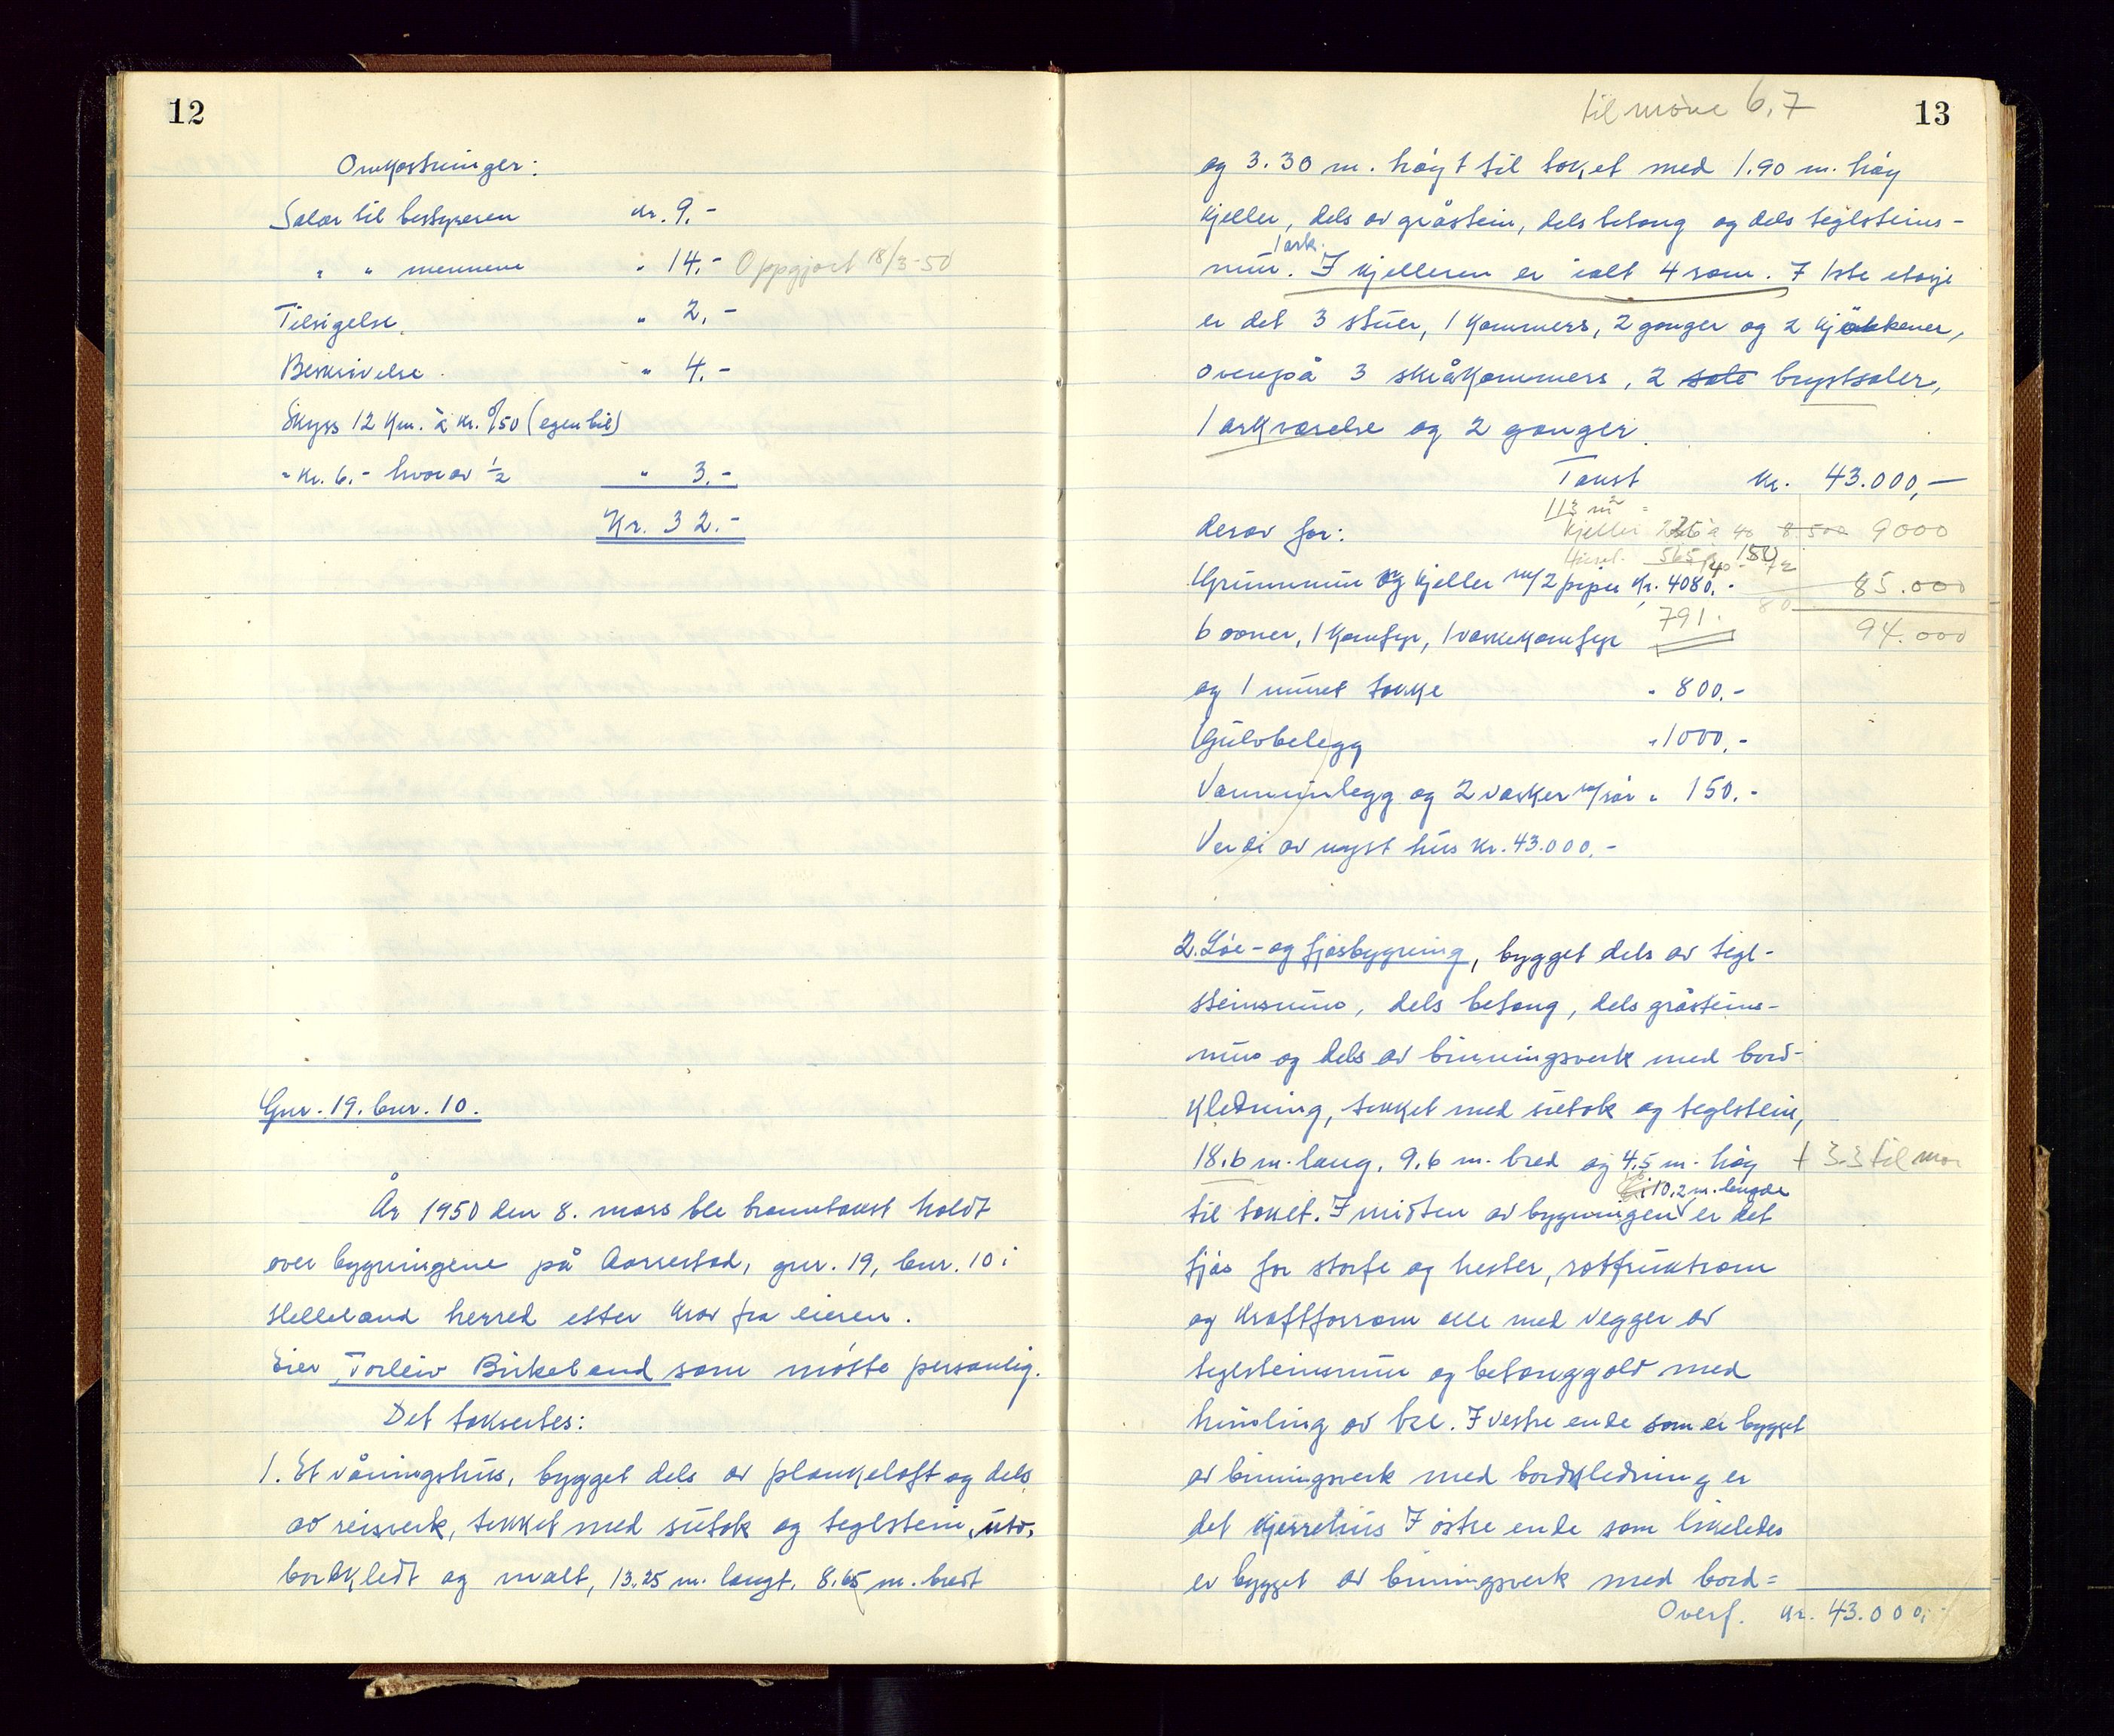 12
Omkostninger:
Salær til bestyreren kr. 9.-
" " mennene " 14.- Oppgjort 18/3-50
Tilsigelse. " 2.-
Beskrivelse. " 4.-
Skyss 12 km. à kr. 0/50 (egen bil)
= kr. 6.- hvorav 1/2 " 3.-
Kr. 32.-
Gnr. 19. bnr. 10.
År 1950 den 8. mars ble branntakst holdt
over bygningene på Aarrestad, gnr. 19, bnr. 10 i
Helleland herred etter krav fra eieren.
Eier Torleiv Birkeland som møtte personlig.
Det taksertes:
1. Et våningshus, bygget dels av plankeloft og dels
av reisverk, tekket med sutak og teglstein, utv.
bordkledt og malt, 13.25 m. langt, 8.65 m. bredt
til møne 6,7
13
og 3.30 m. høgt til taket med 1.90 m. høg
kjeller, dels av gråstein, dels betong og dels teglsteins-
1 ark.
mur. I kjelleren er ialt 4 rom. I 1ste etasje
er det 3 stuer, 1 kammers, 2 ganger og 2 kjøkkener,
ovenpå 3 skråkammers, 2 sale brystsaler,
1 arkværelse og 2 ganger.
Takst kr. 43.000,-
113 m2 =
derav for: kjeller 226 à 40 8.500 9000
565 à 150
Grunnmur og kjeller m/2 piper kr. 4080.- 85.000
80
6 ovner, 1 komfyr, 1 vaskekomfyr 791. 94.000
og 1 muret bakke " 800.-
Gulvbelegg " 1000.-
Vanninnlegg og 2 vasker m/rør " 150.-
Verdi av nytt hus kr. 43.000.-
2. Løe- og fjøsbygning, bygget dels av tegl-
steinsmur, dels betong, dels gråsteins-
mur og dels av binningsverk med bord-
kledning, tekket med sutak og teglstein,
18.6 m. lang, 9.6 m. bred og 4.5 m. høg + 3.3 til møn
i 10.2 m. lengde
til taket. I midten av bygningen er det
fjøs for storfe og hester, rotfruktrom
og kraftforrom alle med vegger av
teglsteinsmur og betonggolv med
himling av tre. I vestre ende som er bygget
av binningsverk med bordkledning er
det kjerrehus I østre ende som likeledes
er bygget av binningsverk med bord=
Overf. kr. 43.000,-